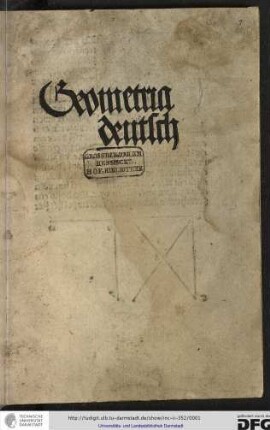 Geometria
deutsch
GROSSHERZOGLICH
HESSISCHE
HOFBIBLIOTHEK
http://tudigit.ulb.tu-darmstadt.de/show/inc-iv-352/0001
TECHNISCHE
UNIVERSITÄT
DARMSTADT
Universitäts- und Landesbibliothek Darmstadt
gefördert durch die
DFG